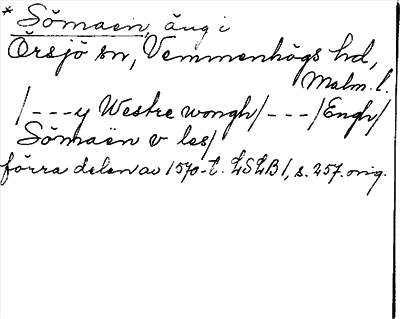 * Sömaen, äng i
Örsjö sn, Vemmenhögs hd,
Malm. l.
/---y Westre wongh/---/Engh/
Sömaën v les/
förra delen av 1570-t. LSLB1, s. 257. orig.